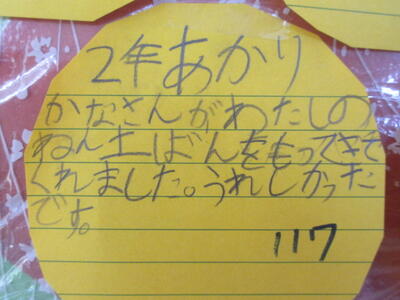 2年あかり
かなさんがわたしの
ねん土ばんをもってきて
くれました。うれしかった
です。
117